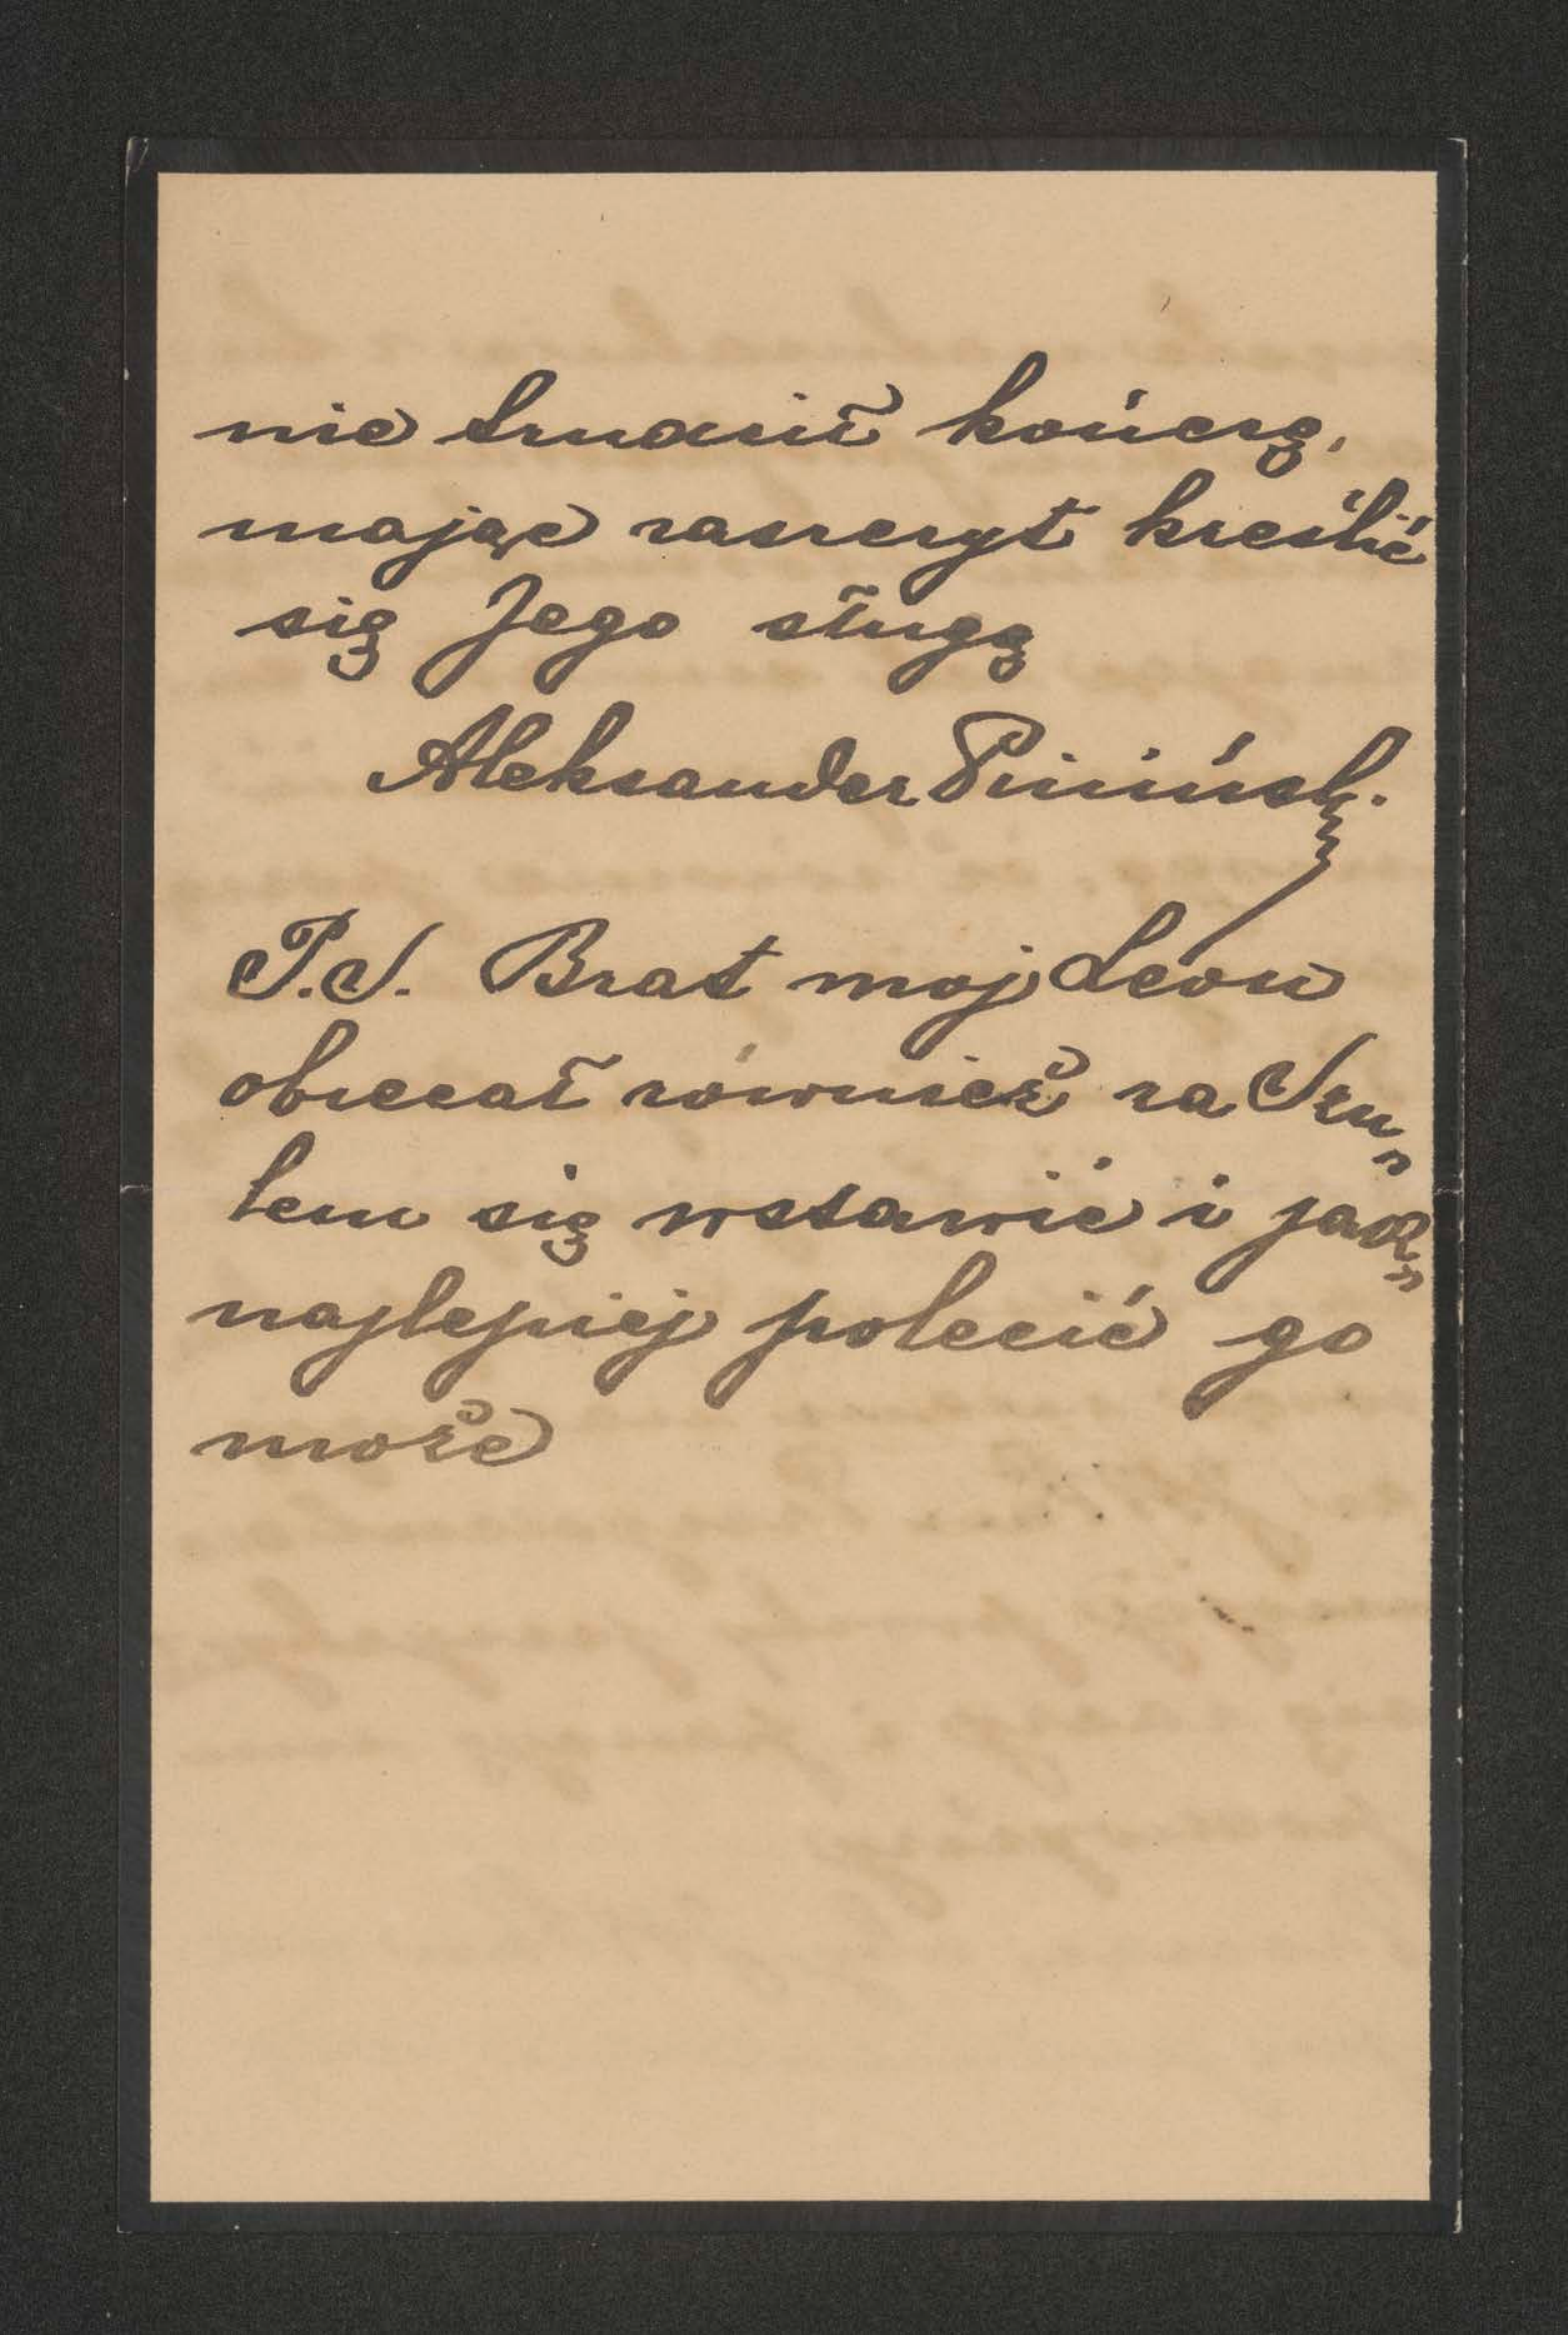 nie trudnić kończę,
mając zaszczyt kreślić
się Jego sługą
Aleksander Piniński.
P.S. Brat moj Leon
obiecał również za Szu„
lem się wstawić i jak„
najlepiej polecić go
może